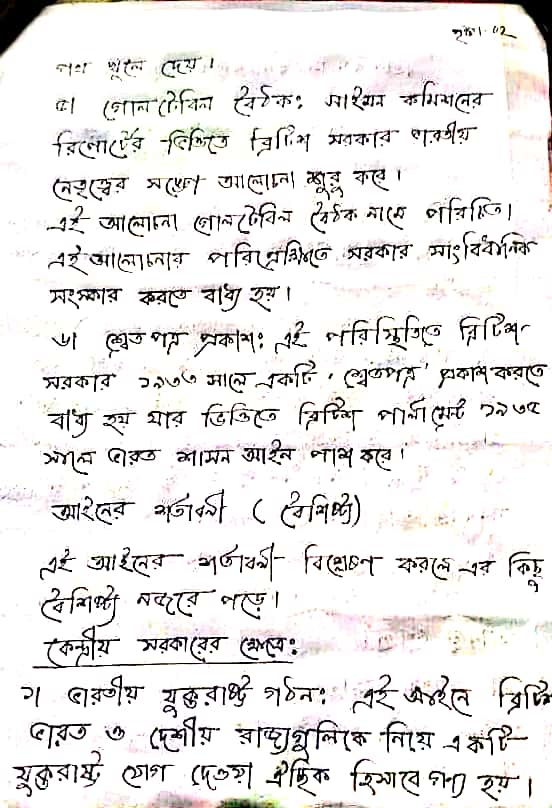 পৃষ্ঠা-০২
পথ খুলে দেয়।
৫। গোলটেবিল বৈঠক: সাইমন কমিশনের
রিপোর্টের ভিত্তিতে ব্রিটিশ সরকার ভারতীয়
নেতৃত্বের সঙ্গে আলোচনা শুরু করে।
এই আলোচনা গোলটেবিল বৈঠক নামে পরিচিত।
এই আলোচনার পরিপ্রেক্ষিতে সরকার সাংবিধানিক
সংস্কার করতে বাধ্য হয়।
৬। শ্বেতপত্র প্রকাশ: এই পরিস্থিতিতে ব্রিটিশ
সরকার ১৯৩৩ সালে একটি 'শ্বেতপত্র' প্রকাশ করতে
বাধ্য হয় যার ভিত্তিতে ব্রিটিশ পার্লামেন্ট ১৯৩৫
সালে ভারত শাসন আইন পাশ করে।
আইনের শর্তাবলী (বৈশিষ্ট্য)
এই আইনের শর্তাবলী বিশ্লেষণ করলে এর কিছু
বৈশিষ্ট্য নজরে পড়ে।
কেন্দ্রীয় সরকারের ক্ষেত্রে:
১। ভারতীয় যুক্তরাষ্ট্র গঠন: এই আইনে ব্রিটিশ
ভারত ও দেশীয় রাজ্যগুলিকে নিয়ে একটি
যুক্তরাষ্ট্রে যোগ দেওয়া ঐচ্ছিক হিসাবে গণ্য হয়।